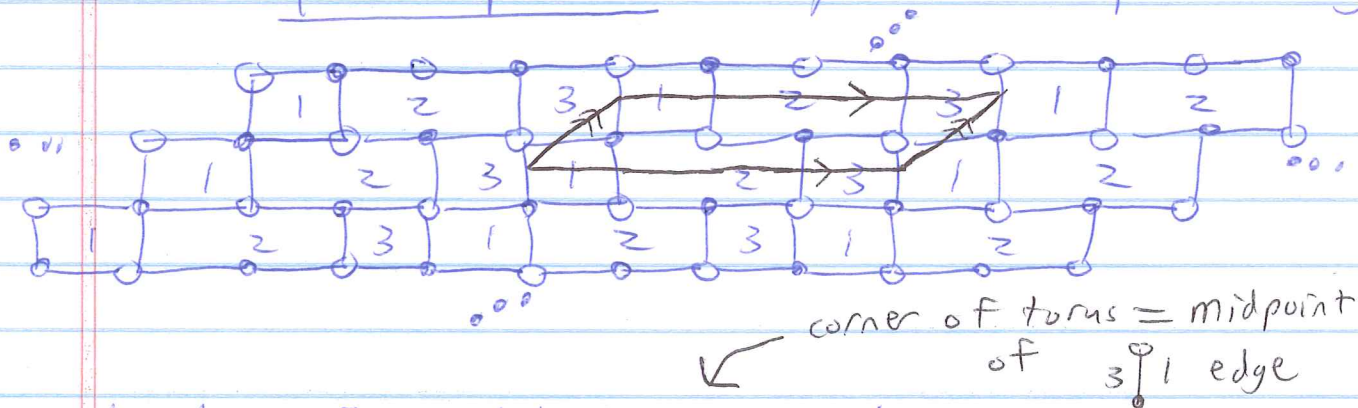 1 2 3 1 2 3 1 2
1 2 3 1 2 3 1 2
1 2 3 1 2 3 1 2
corner of torus = midpoint
of 3 1 edge